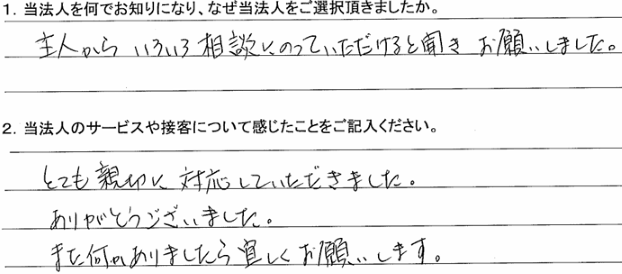 1. 当法人を何でお知りになり、なぜ当法人をご選択頂きましたか。
主人から いろいろ相談にのっていただけると聞き お願いしました。
2. 当法人のサービスや接客について感じたことをご記入ください。
とても親切に 対応していただきました。
ありがとうございました。
また何かありましたら宜しくお願いします。